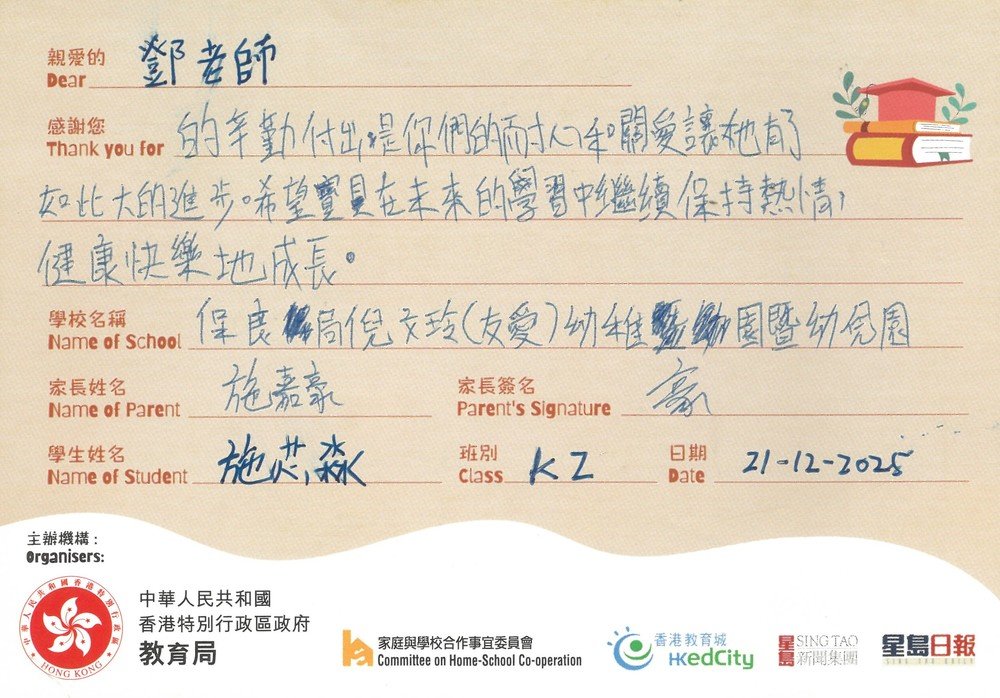 親愛的
Dear 鄧老師
感謝您
Thank you for 的辛勤付出,是你們的耐心和關愛讓她有了
如此大的進步。希望寶貝在未來的學習中繼續保持熱情,
健康快樂地成長。
學校名稱
Name of School 保良局倪文玲(友愛)幼稚園暨幼兒園
家長姓名
Name of Parent 施嘉豪
家長簽名
Parent's Signature 豪
學生姓名
Name of Student 施芯淼
班別
Class K2
日期
Date 21-12-2025
主辦機構:
Organisers:
中華人民共和國香港特別行政區
HONG KONG
中華人民共和國
香港特別行政區政府
教育局
家庭與學校合作事宜委員會
Committee on Home-School Co-operation
香港教育城
HKedCity
星島 SING TAO
新聞集團
星島日報
SING TAO DAILY